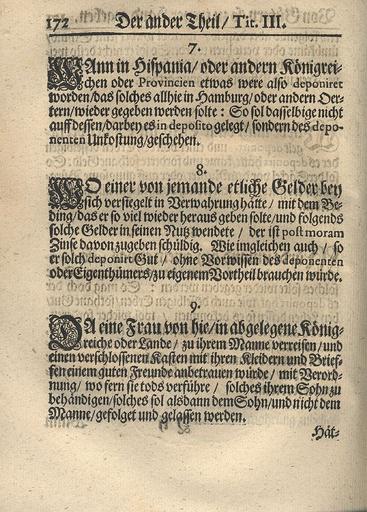 172 Der ander Theil / Tit. III.
7.
WAnn in Hispania / oder andern Königrei-
chen oder Provincien etwas were also deponiret
worden / das solches allhie in Hamburg / oder andern Oer-
tern / wieder gegeben werden solte : So sol dasselbige nicht
auff dessen / darbey es in deposito gelegt / sondern des depo-
nenten Unkostung / geschehen.
8.
WO einer von jemande etliche Gelder bey
sich versiegelt in Verwahrung hätte / mit dem Be-
ding / das er so viel wieder heraus geben solte / und folgends
solche Gelder in seinen Nutz wendete / der ist post moram
Zinse davon zugeben schüldig. Wie imgleichen auch / so
er solch deponirt Gut / ohne Vorwissen des deponenten
oder Eigenthümers / zu eigenem Vortheil brauchen würde.
9.
DA eine Frau von hie / in abgelegene König-
reiche oder Lande / zu ihrem Manne verreisen / und
einen verschlossenen Kasten mit ihren Kleidern und Brief-
fen einem guten Freunde anbetrauen würde / mit Verord-
nung / wo fern sie tods verführe / solches ihrem Sohn zu
behändigen / solches sol alsdann dem Sohn / und nicht dem
Manne / gefolget und gelassen werden.
Hät-